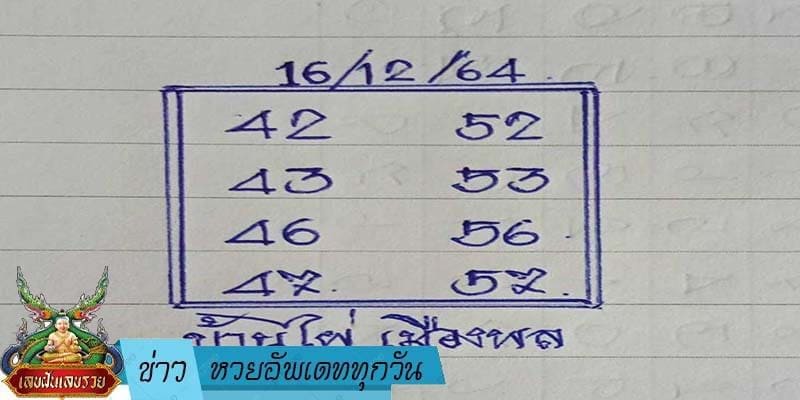 16/12/64
42 52
43 53
46 56
47. 57.
บ้านไผ่ เมืองพล
เลขฝันเลขรวย
ข่าว หวยอัพเดททุกวัน